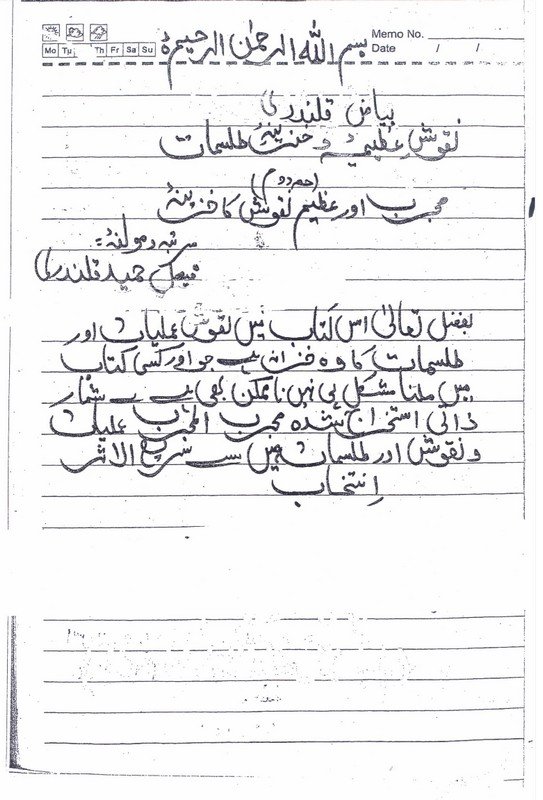 بسم اللہ الرحمٰن الرحیم ہ
Memo No.
Mo Tu Th Fr Sa Su
Date / /
بیاض قلندری
نقوش عظیمیہ و خزینۂ طلسمات
(حصہ دوم)
مجرب اور عظیم نقوش کا خزینہ
مرتبہ و مولفہ =
فیصل حمید قلندری
بفضل تعالیٰ اس کتاب میں نقوش عملیات اور
طلسمات کا وہ خزانہ ہے جو اور کسی کتاب
میں ملنا مشکل ہی نہیں ناممکن بھی ہے بے شمار
ذاتی استخراج شدہ مجرب المجرب عملیات
و نقوش اور طلسمات میں سے سریع الاثر
انتخاب